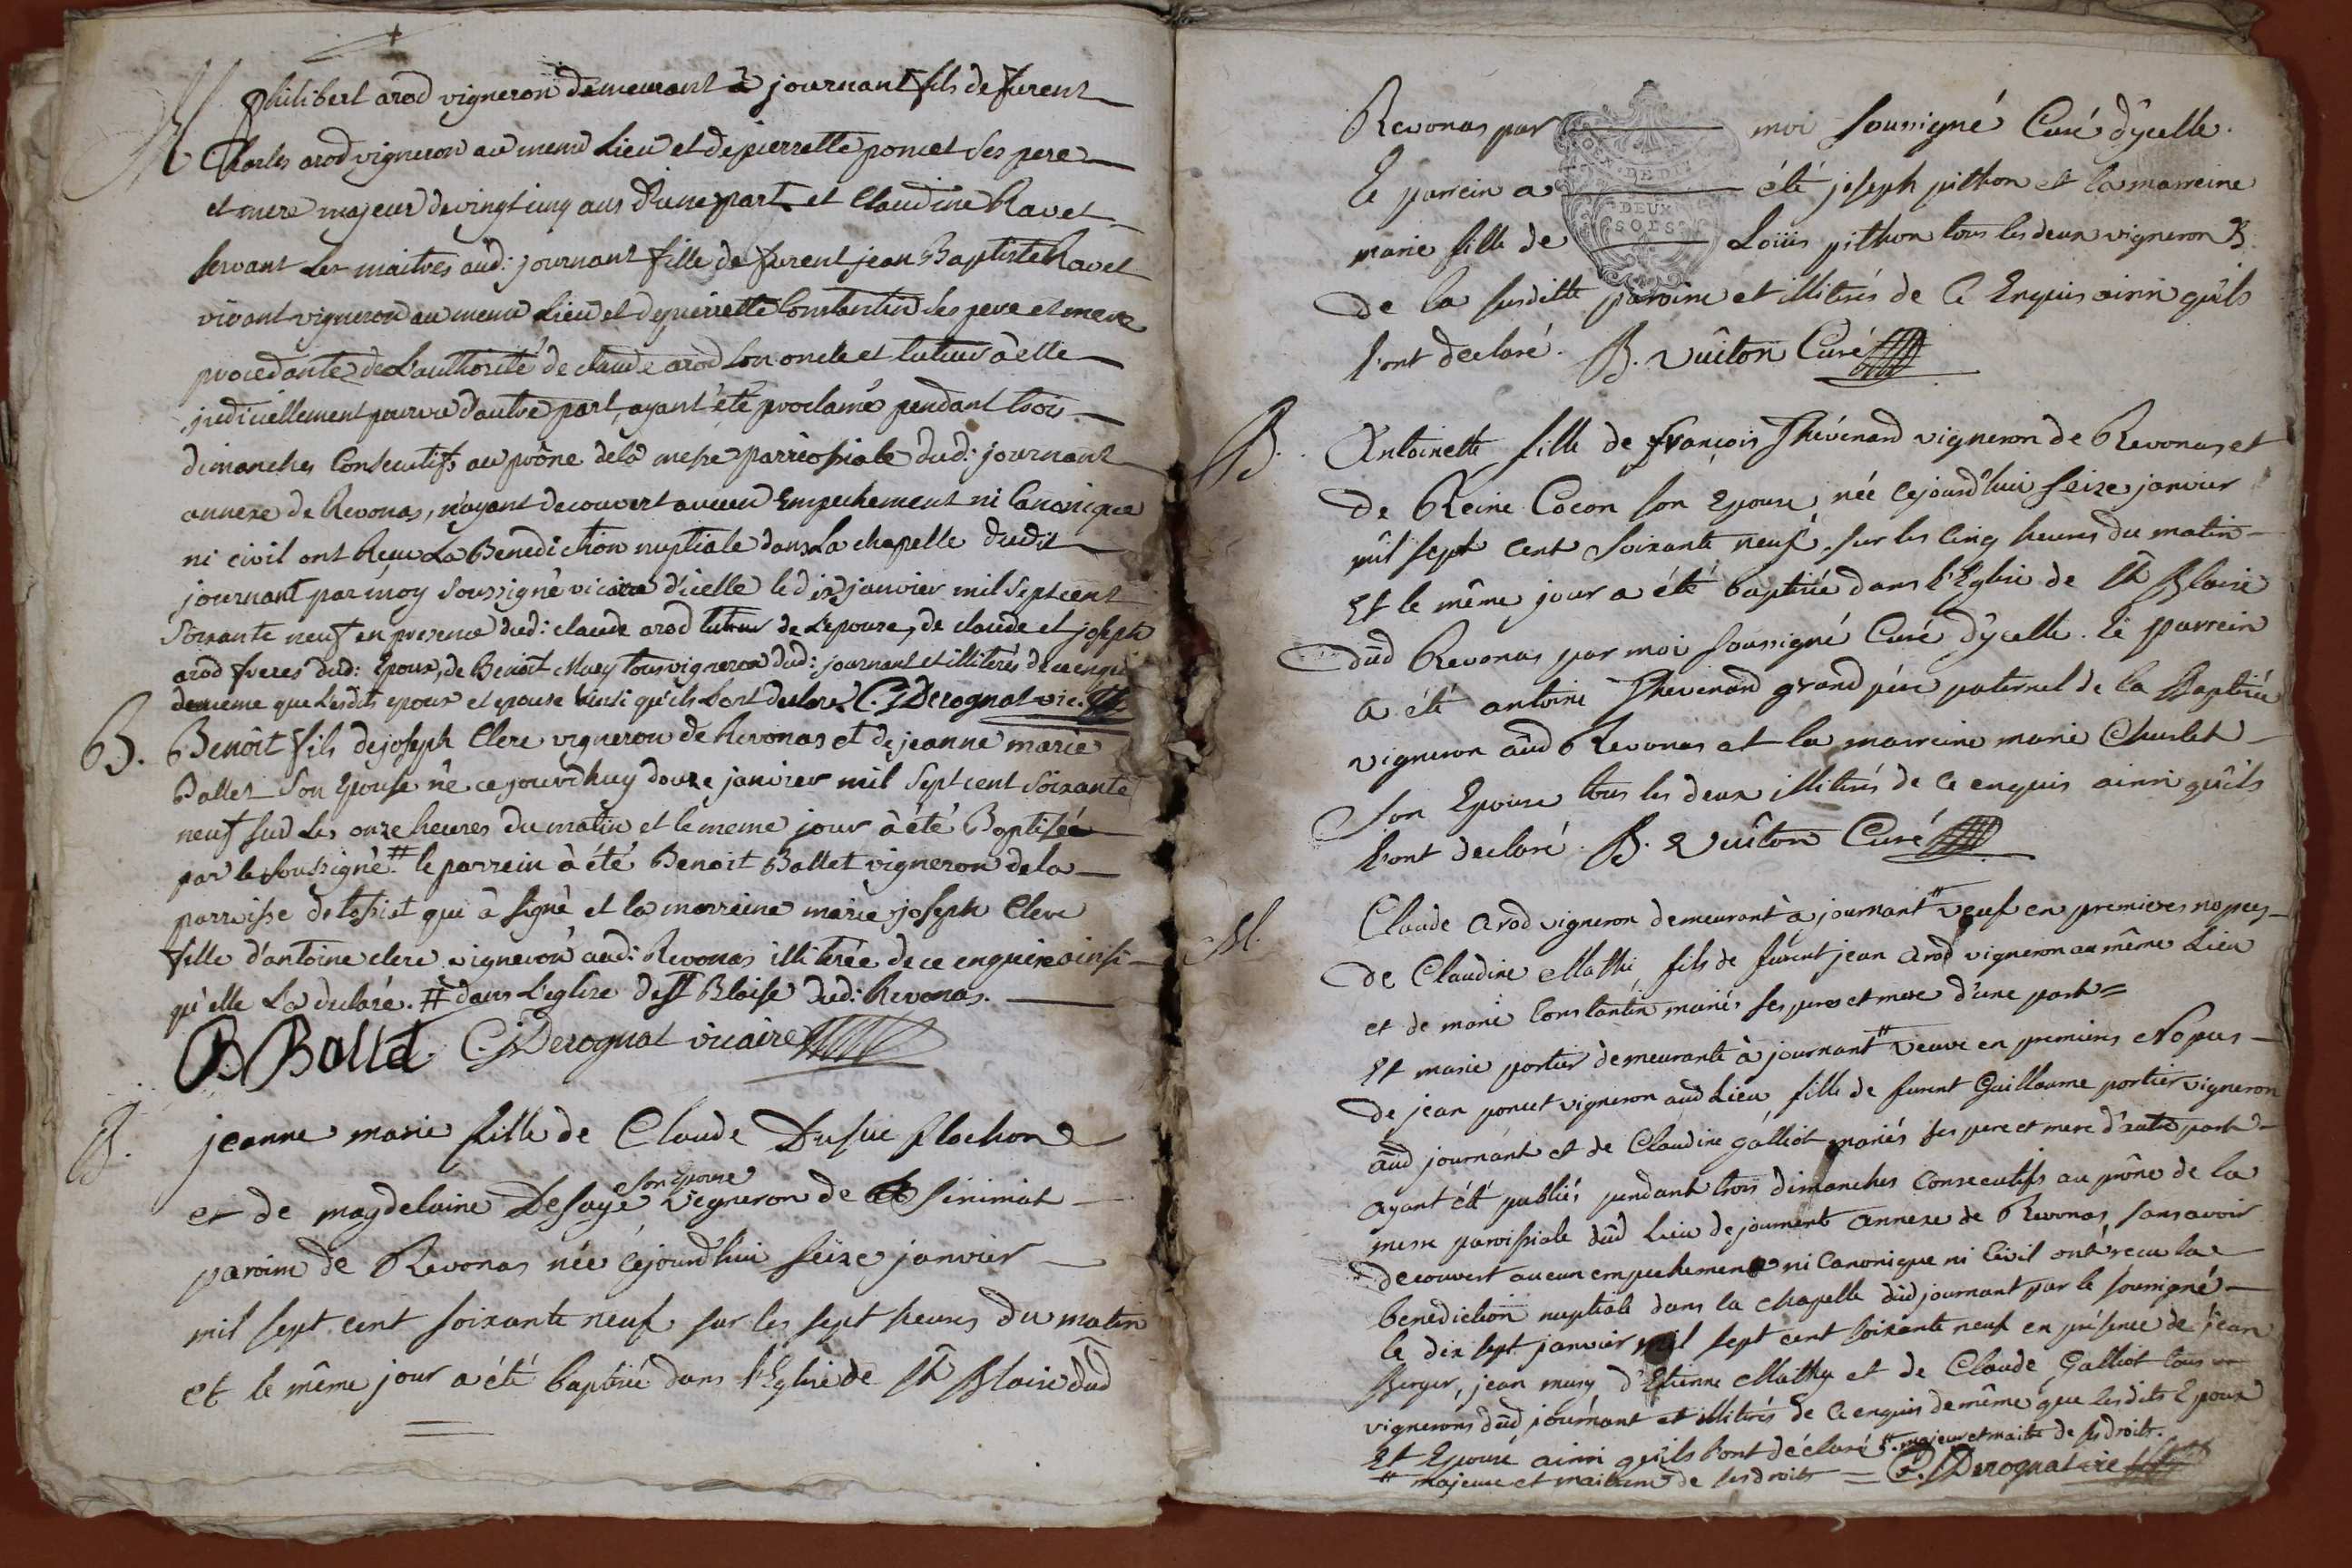 M
Philibert arod vigneron demeurant à journant fils de furent
Charles arod vigneron au meme Lieu et de pierrette poncet ses pere
et mere majeur de vingt cinq ans d'une part et Claudine Ravet
servant les maitres aud: journant fille de furent jean Baptiste Ravet
vivant vigneron au meme Lieu et de pierrette Constantin ses pere et mere
procedante de L'authorité de claude arod son oncle et tuteur à elle
judiciellement pourvu d'autre part, ayant été proclamé pendant trois
dimanches Consecutifs au prône de la messe parroissiale dud: journant
annexe de Revonas, n'ayant decouvert aucun Empechement ni Canonique
ni civil ont Reçu La Benediction nuptiale dans La chapelle dudit
journant par moy soussigné vicaire d'icelle le dix janvier mil sept cent
soixante neuf en presence dud: claude arod tuteur de L'epouse, de claude et joseph
arod freres dud: Epoux, de Benoit Muey tous vigneron dud: journant et illiterés de ce enqui
de meme que Lesdits epoux et epouse ainsi qu'ils L'ont declaré C. J Derognat vic.
B. Benoît fils de joseph Clere vigneron de Revonas et de jeanne marie
Ballet son Epouse né ce jourd'huy douze janvier mil sept cent soixante
neuf sud Les onze heures du matin et le meme jour à été Baptisée
par le soussigné # le parrein à été Benoit Ballet vigneron de la
parroisse de tossiat qui à signé et la marreine marie joseph Clere
fille d'antoine clere vigneron aud: Revonas illiterée de ce enquise ainsi
qu'elle La declaré. # dans L'eglise de St Blaise dud: Revonas.
B Ballet C. J Derognat vicaire
B. jeanne marie fille de Claude Dufue plochon
son epouse
et de magdelaine Desaye vigneron de Sinimat
paroisse de Revonas née cejourd'hui seize janvier
mil sept cent soixante neuf sur les sept heures du matin
et le même jour a été baptisée dans l'Eglise de St Blaise dud
Revonas par moi soussigné Curé d'ycelle.
le parrein a été joseph pithon et la marreine
marie fille de Loüis pithon tous les deux vigneron
de la susditte paroisse et illiterés de ce Enquis ainsi qu'ils
l'ont declaré. B. Vuiton Curé
DEUX
SOLS
B. Antoinette fille de françois Thévenard vigneron de Revonas et
de Reine Cocon son Epouse née cejourd'hui seize janvier
mil sept cent soixante neuf sur les cinq heures du matin
Et le même jour a été baptisée dans l'Eglise de St Blaise
dud Revonas par moi soussigné Curé d'ycelle. le parrein
a été antoine Thevenard grand père paternel de la Baptisée
vigneron aud Revonas et la marreine marie Charlet
son Epouse tous les deux illiterés de ce enquis ainsi qu'ils
l'ont declaré. B. Vuiton Curé
M. Claude arod vigneron demeurant à journant # veuf en premieres nopces
de Claudine Mathi, fils de furent jean arod vigneron au même Lieu
et de marie Constantin mariés ses pere et mere d'une part =
Et marie portier demeurante à journant # veuve en premieres Nopces
de jean poncet vigneron aud Lieu fille de furent Guillaume portier vigneron
aud journant et de Claudine galliot mariés ses pere et mere d'autre part
ayant été publiés pendant trois dimanches consecutifs au prône de la
messe paroissiale dud Lieu de journant annexe de Revonas, sans avoir
decouvert aucun empechement ni Canonique ni Civil ont reçu la
benediction nuptiale dans la chapelle dud journant par le soussigné
le dix sept janvier mil sept cent soixante neuf en présence de jean
Berger, jean muey d'Etienne Mathy et de Claude Galliot tous
vignerons dud journant et illiterés de ce enquis de même que les dits Epoux
Et Epouse ainsi qu'ils l'ont déclaré # majeur et maitre de ses droits.
# majeure et maitresse de ses droits = C. J Derognat vic